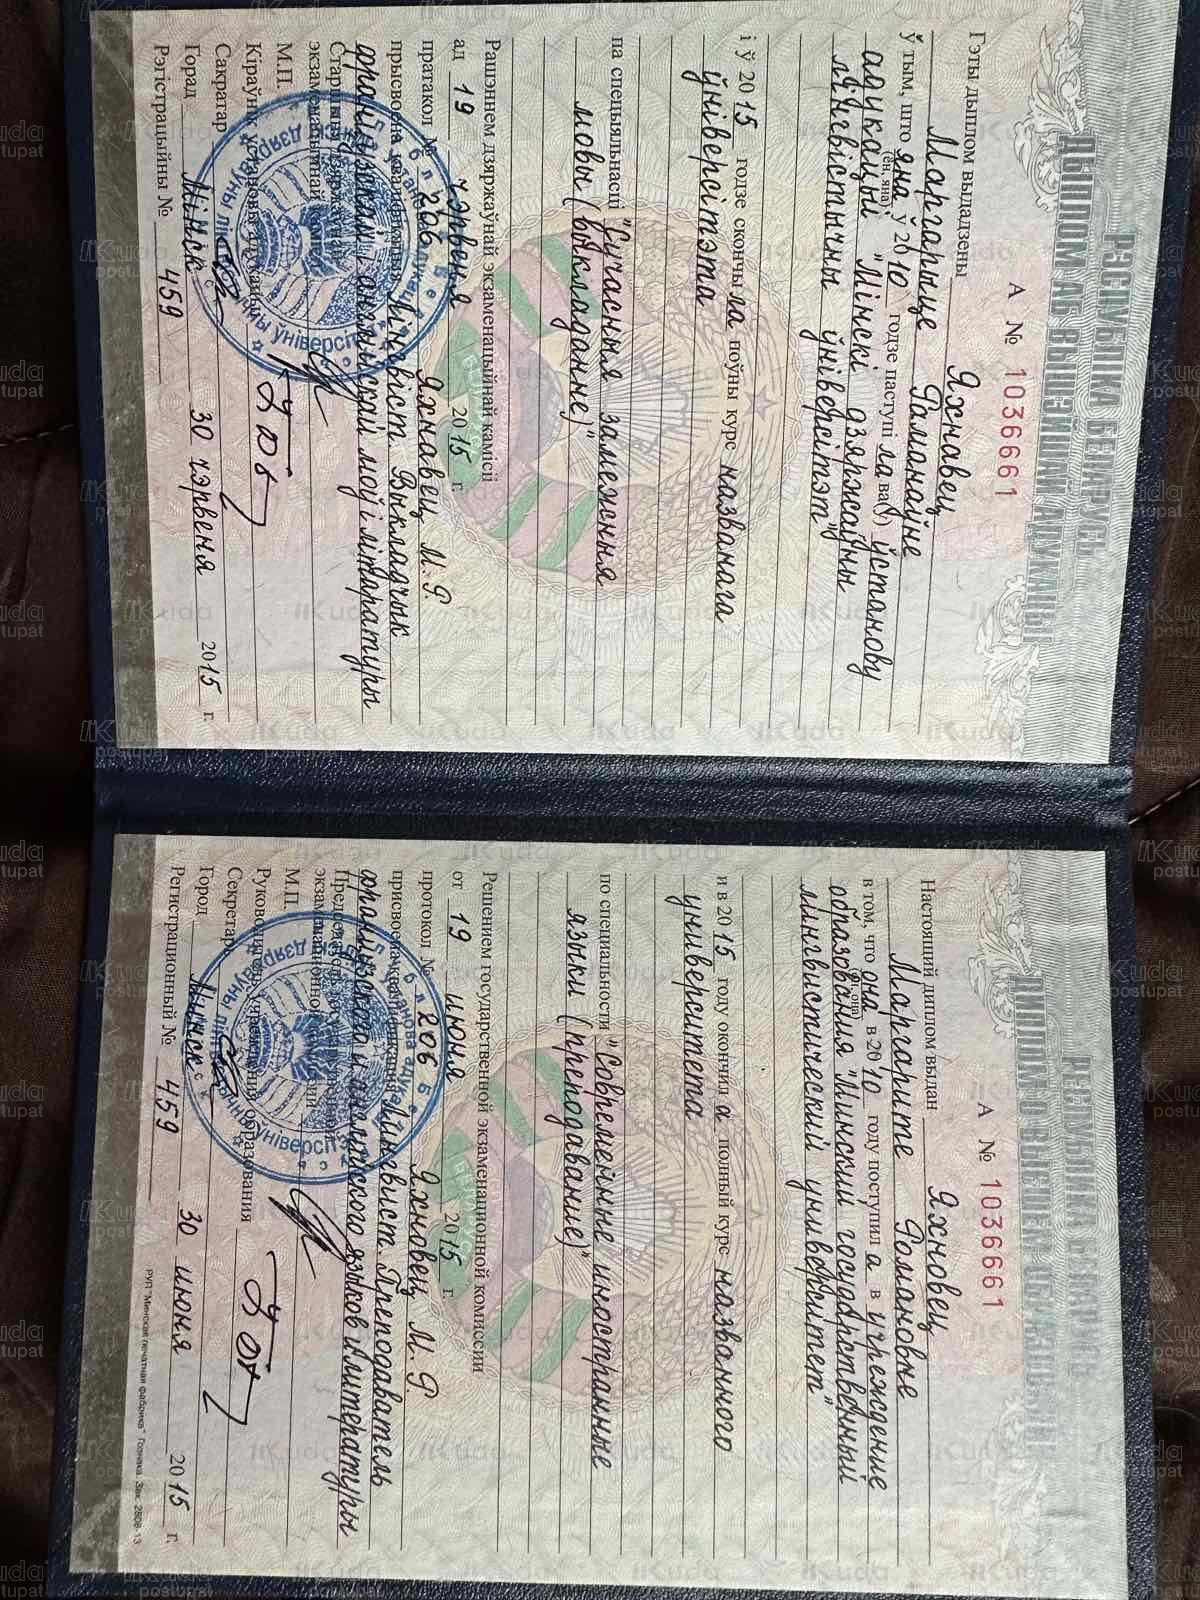 РЭСПУБЛІКА БЕЛАРУСЬ
ДЫПЛОМ АБ ВЫШЭЙШАЙ АДУКАЦЫІ
А № 1036661
Гэты дыплом выдадзены Яхнавец
Маргарыце Раманаўне
ў тым, што яна ў 2010 годзе паступіла ва(ў) ўстанову
(ён, яна)
адукацыі "Мінскі дзяржаўны
лінгвістычны ўніверсітэт"
і ў 2015 годзе скончыла поўны курс названага
ўніверсітэта
па спецыяльнасці "Сучасныя замежныя
мовы (выкладанне)"
Рашэннем дзяржаўнай экзаменацыйнай камісіі
ад 19 чэрвеня 2015 г.
пратакол № 206 Яхнавец М. Р.
прысвоена кваліфікацыя Лінгвіст. Выкладчык
французскай і англійскай моў і літаратуры
Старшыня дзяржаўнай
экзаменацыйнай камісіі
М.П.
Кіраўнік установы адукацыі
Сакратар
Горад Мінск 30 чэрвеня 2015 г.
Рэгістрацыйны № 459
РЕСПУБЛИКА БЕЛАРУСЬ
ДИПЛОМ О ВЫСШЕМ ОБРАЗОВАНИИ
А № 1036661
Настоящий диплом выдан Яхновец
Маргарите Романовне
в том, что она в 2010 году поступила в учреждение
(он, она)
образования "Минский государственный
лингвистический университет"
и в 2015 году окончила полный курс названного
университета
по специальности "Современные иностранные
языки (преподавание)"
Решением государственной экзаменационной комиссии
от 19 июня 2015 г.
протокол № 206 Яхновец М. Р.
присвоена квалификация Лингвист. Преподаватель
французского и английского языков и литературы
Председатель государственной
экзаменационной комиссии
М.П.
Руководитель учреждения образования
Секретарь
Город Минск 30 июня 2015 г.
Регистрационный № 459
РУП "Минская печатная фабрика" Гознака. Зак. 2808-13